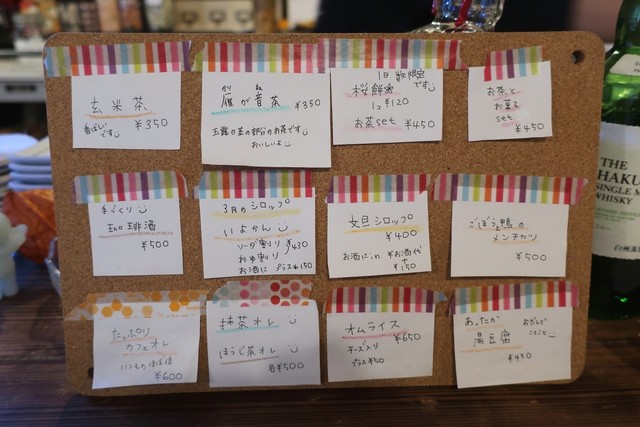 玄米茶
香ばしい
です
¥350
かり が ね
雁が音茶 ¥350
玉露の茎の部分のお茶です
おいしいよ
1日数限定
です
桜餅
1コ ¥120
お茶set ¥450
お茶と
お菓子
set
¥450
手づくり
珈琲酒
¥500
3月のシロップ
いよかん
ソーダ割り ¥430
お湯割り
お酒に プラス¥150
文旦シロップ
¥400
お酒にin ¥お酒代
+
¥150
ごぼうと鴨の
メンチカツ
¥500
たっぷり
カフェオレ
いつものほぼ倍
¥600
抹茶オレ
ほうじ茶オレ
各¥500
オムライス
¥650
チーズ入り
プラス¥50
あったか
湯豆腐
おだしで
ことこと
¥450
THE
HAKU
SINGLE M
WHISKY